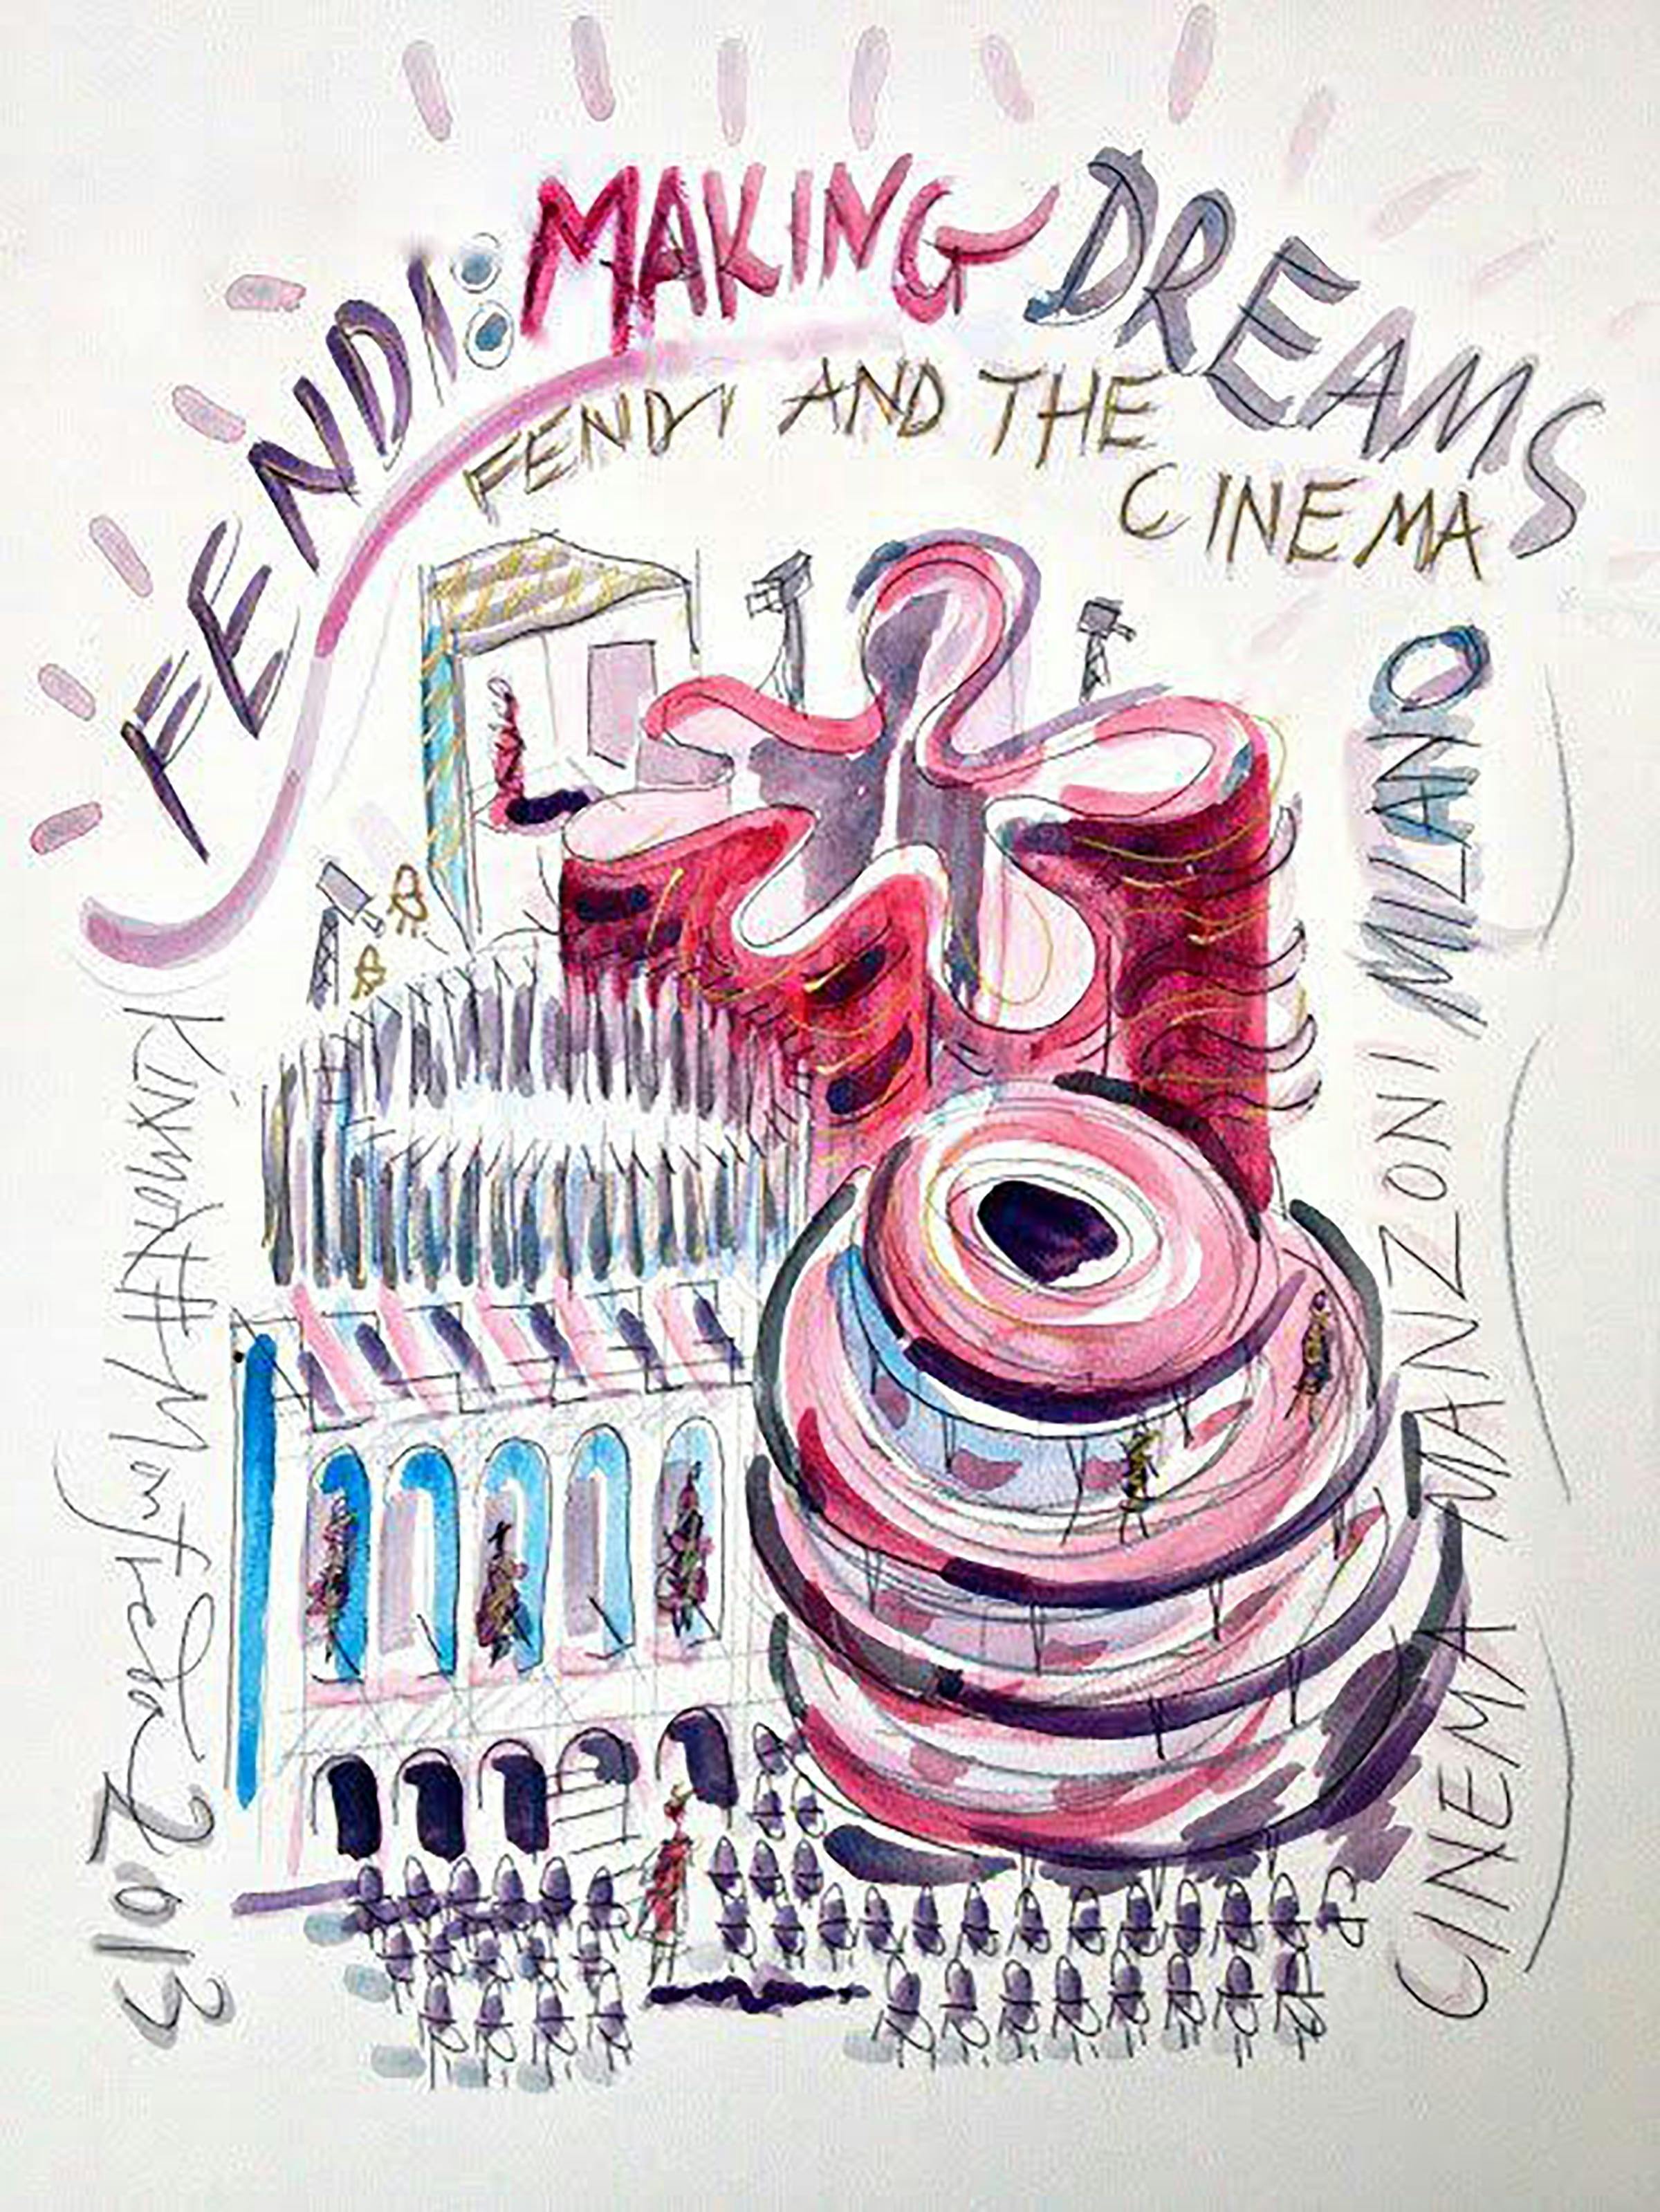 FENDI: MAKING DREAMS
FENDI AND THE
CINEMA
CINEMA MANZONI MILANO
2013